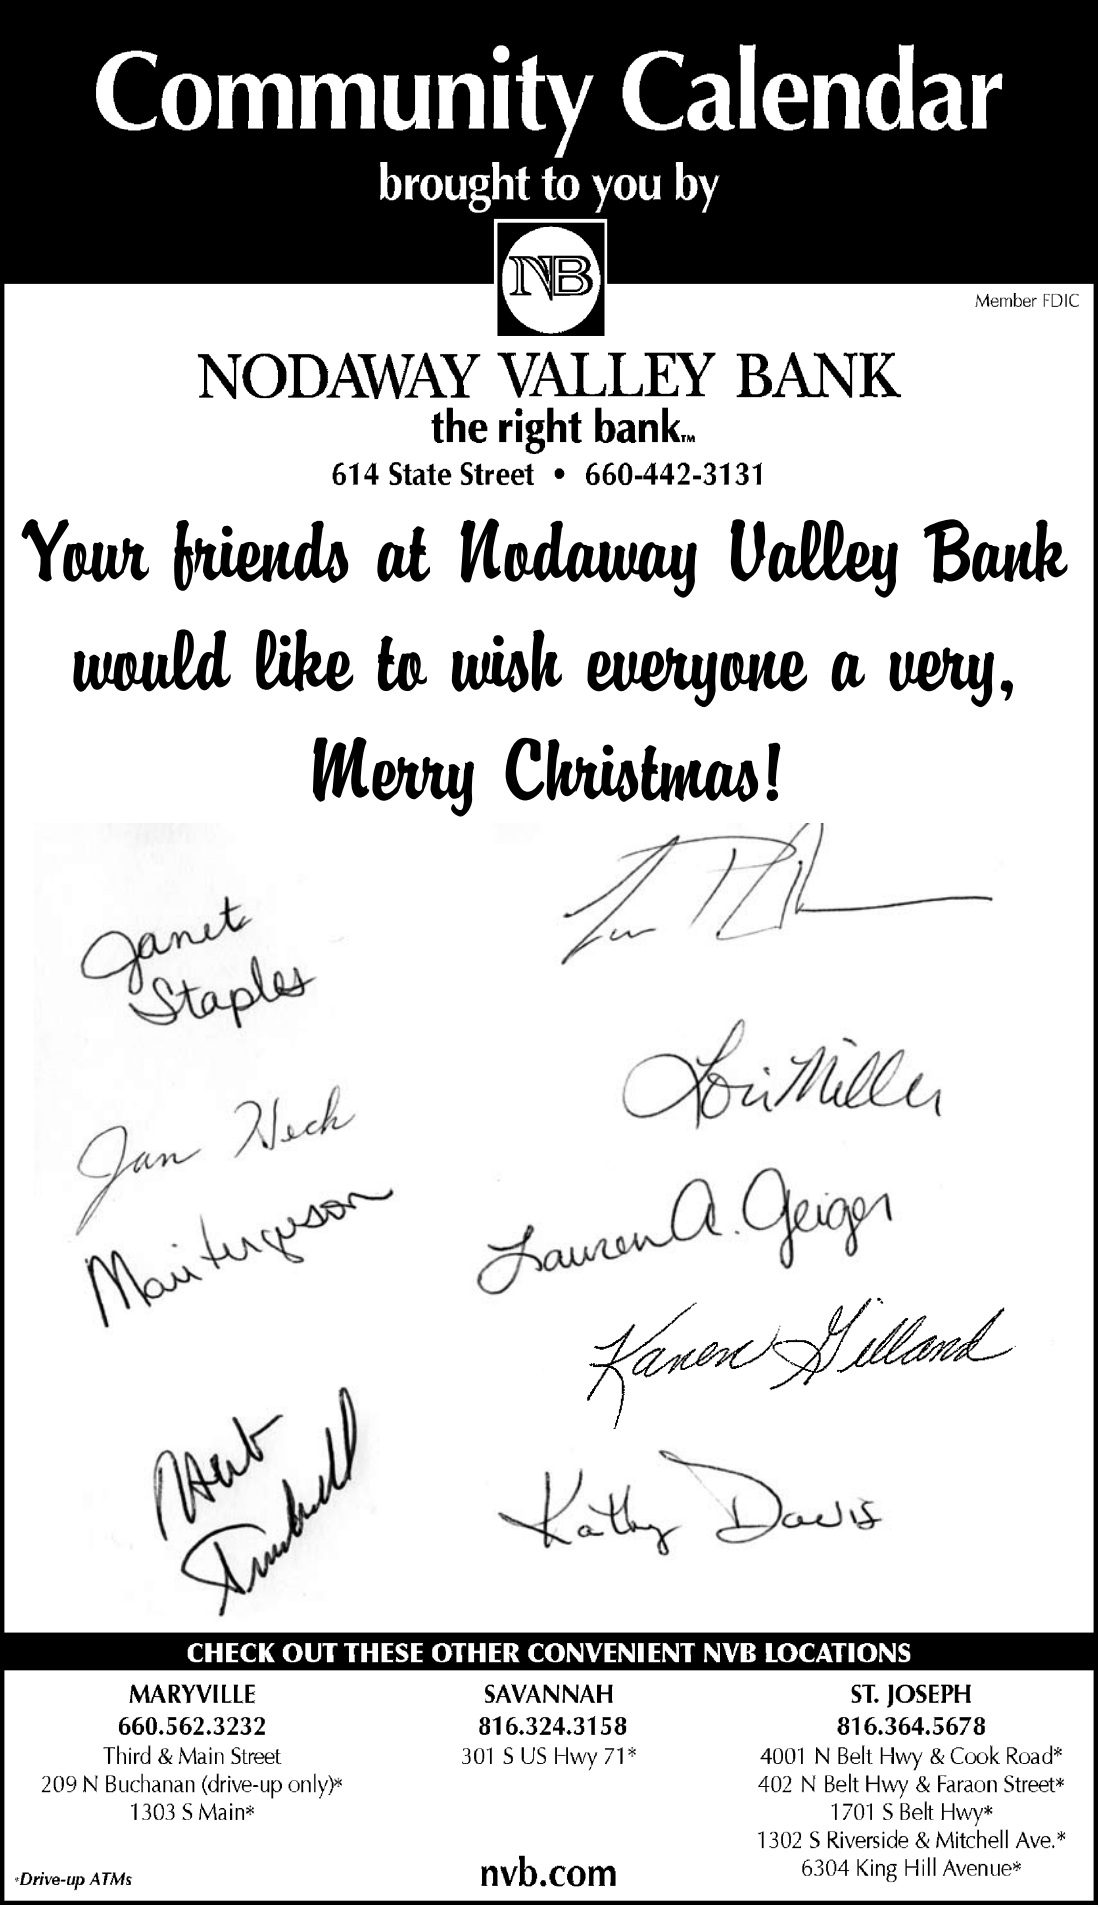 Community Calendar
brought to you by
NB
Member FDIC
NODAWAY VALLEY BANK
the right bank™
614 State Street • 660-442-3131
Your friends at Nodaway Valley Bank
would like to wish everyone a very,
Merry Christmas!
Janet
Staples
Lori Miller
Jan Heck
Mari Ferguson
Lauren A. Geiger
Karen Gilland
Kathy Davis
CHECK OUT THESE OTHER CONVENIENT NVB LOCATIONS
MARYVILLE
660.562.3232
Third & Main Street
209 N Buchanan (drive-up only)*
1303 S Main*
*Drive-up ATMs
SAVANNAH
816.324.3158
301 S US Hwy 71*
nvb.com
ST. JOSEPH
816.364.5678
4001 N Belt Hwy & Cook Road*
402 N Belt Hwy & Faraon Street*
1701 S Belt Hwy*
1302 S Riverside & Mitchell Ave.*
6304 King Hill Avenue*